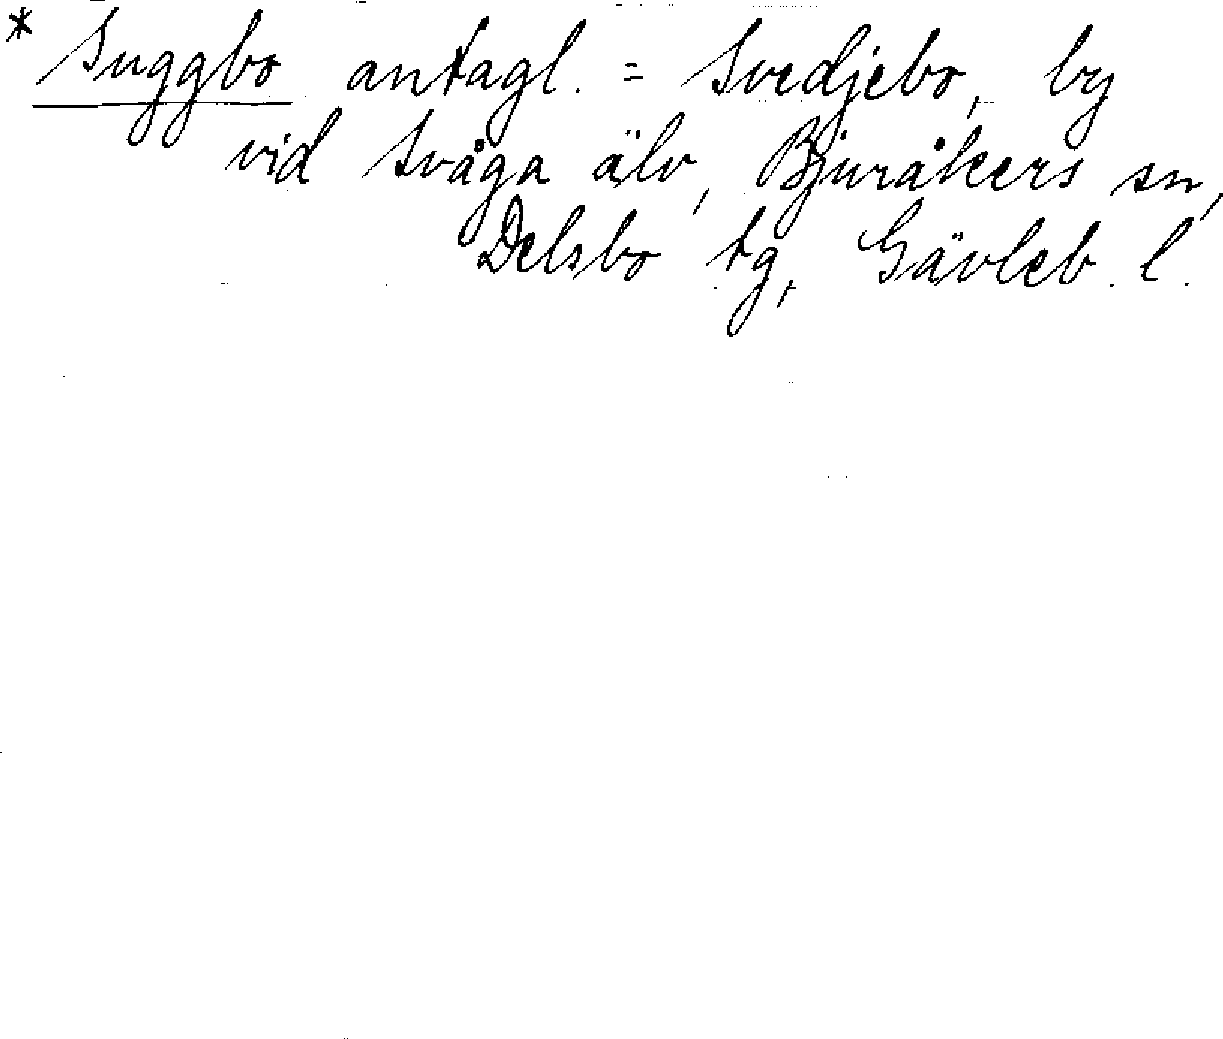 * Suggbo antagl. = Svedjebo, by
vid Svåga älv, Bjuråkers sn,
Delsbo tg, Gävleb. l.